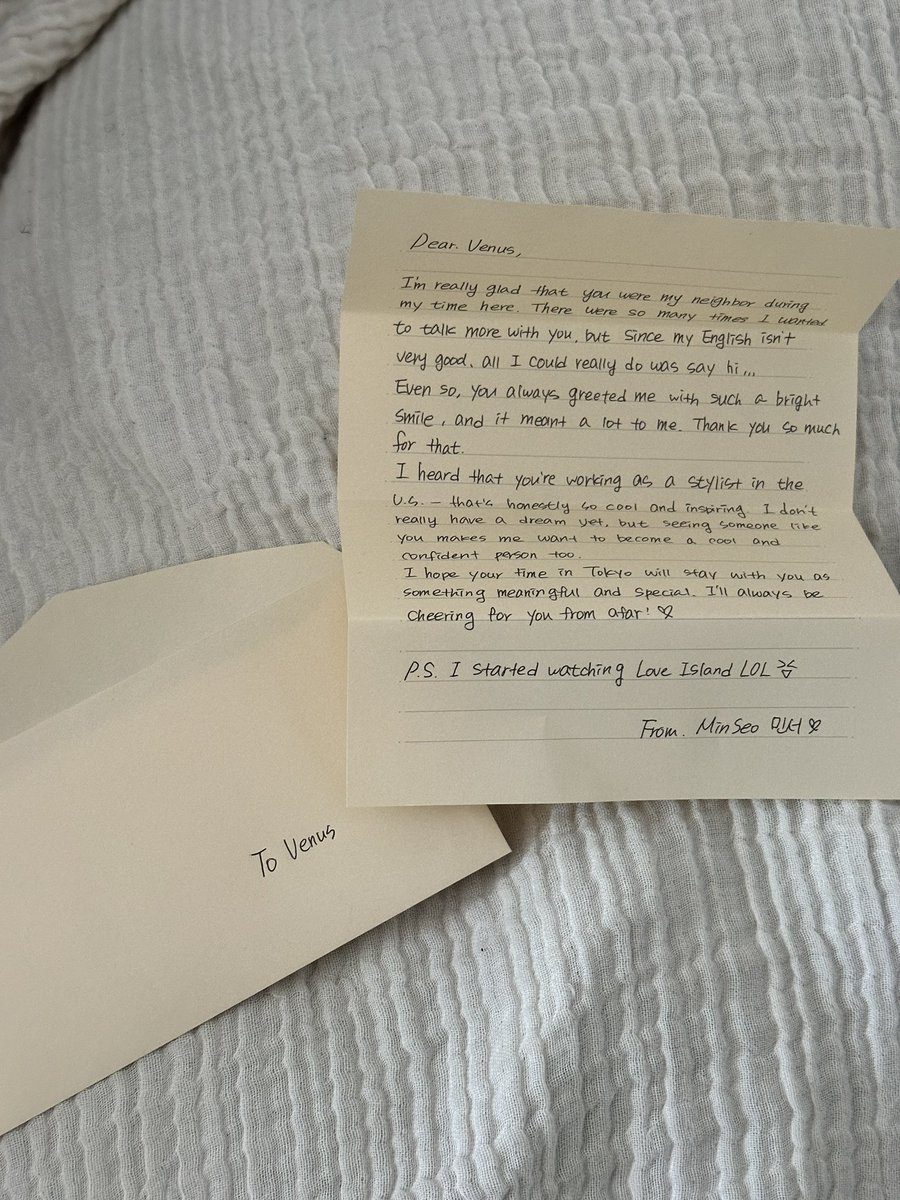 Dear. Venus,
I'm really glad that you were my neighbor during
my time here. There were so many times I wanted
to talk more with you, but since my English isn't
very good, all I could really do was say hi...
Even so, you always greeted me with such a bright
smile, and it meant a lot to me. Thank you so much
for that.
I heard that you're working as a stylist in the
U.S. – that's honestly so cool and inspiring. I don't
really have a dream yet, but seeing someone like
you makes me want to become a cool and
confident person too.
I hope your time in Tokyo will stay with you as
something meaningful and special. I'll always be
cheering for you from afar! ♡
P.S. I started watching Love Island LOL ><
From. MinSeo 민서 ♡
To Venus